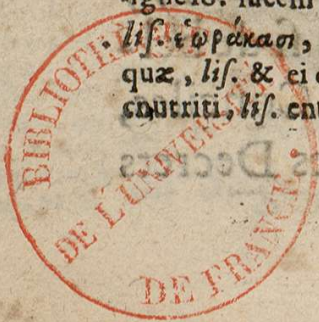 lis. ἑωράκασι,
quæ, lis. & ei
enutriti, lis.
BIBLIOTHÈQUE
DE L'UNIVERSITÉ
DE FRANCE.